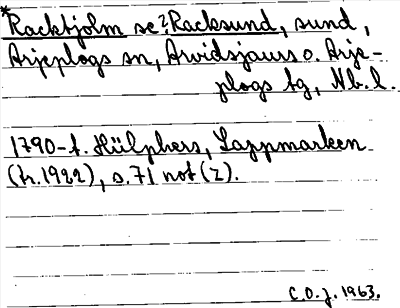 *Racktjolm se ?Racksund, sund,
Arjeplogs sn, Arvidsjaurs o. Arje-
plogs tg, Nb. l.
1790-t. Hülphers, Lappmarken
(tr. 1922), s. 71 not (z).
C.O.J. 1963.